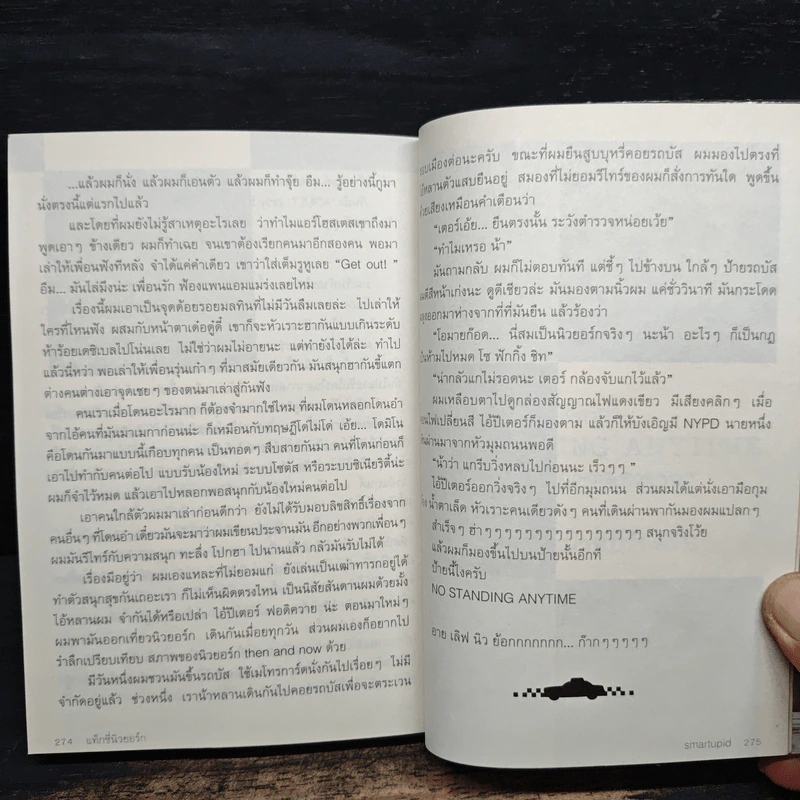 ...แล้วผมก็นั่ง แล้วผมก็เอนตัว แล้วผมก็ทำจุ๊ย อืม... รู้อย่างนี้กูมา
นั่งตรงนี้แต่แรกไปแล้ว
และโดยที่ผมยังไม่รู้สาเหตุอะไรเลย ว่าทำไมแอร์โฮสเตสเขาถึงมา
พูดเอาๆ ข้างเดียว ผมก็ทำเฉย จนเขาต้องเรียกคนมาอีกสองคน พอมา
เล่าให้เพื่อนฟังทีหลัง จำได้แค่คำเดียว เขาว่าใส่เต็มรูหูเลย "Get out! "
อืม... มันไล่มึงน่ะ เพื่อนรัก ฟ้องแพนแอมแมร่งเลยไหม
เรื่องนี้ผมเอาเป็นจุดด้อยรอยมลทินที่ไม่มีวันลืมเลยล่ะ ไปเล่าให้
ใครที่ไหนฟัง ผสมกับหน้าตาเด๋อดู๋ดี๋ เขาก็จะหัวเราะฮากันแบบเกินระดับ
ห้าร้อยเดซิเบลไปโน่นเลย ไม่ใช่ว่าผมไม่อายนะ แต่ทำยังไงได้ล่ะ ทำไป
แล้วนี่หว่า พอเล่าให้เพื่อนรุ่นเก๋าๆ ที่มาสมัยเดียวกัน มันสนุกฮากันขี้แตก
ต่างคนต่างเอาจุดเชยๆ ของตนมาเล่าสู่กันฟัง
คนเราเมื่อโดนอะไรมาก ก็ต้องจำมากใช่ไหม ที่ผมโดนหลอกโดนอำ
จากไอ้คนที่มันมาเมกาก่อนน่ะ ก็เหมือนกับทฤษฎีโดไม่โด่ เอ้ย... โดมิโน
คือโดนกันมาแบบนี้เกือบทุกคน เป็นทอดๆ สืบสายกันมา คนที่โดนก่อนก็
เอาไปทำกับคนต่อไป แบบรับน้องใหม่ ระบบโซตัส หรือระบบซิเนียริตี้น่ะ
ผมก็จำไว้หมด แล้วเอาไปหลอกพอสนุกกับน้องใหม่คนต่อไป
เอาคนใกล้ตัวผมมาเล่าก่อนดีกว่า ยังไม่ได้รับมอบลิขสิทธิ์เรื่องจาก
คนอื่นๆ ที่โดนอำ เดี๋ยวมันจะมาว่าผมเขียนประจานมัน อีกอย่างพวกเพื่อนๆ
ผมมันรีไทร์กับความสนุก ทะลึ่ง โปกฮา ไปนานแล้ว กลัวมันรับไม่ได้
เรื่องมีอยู่ว่า ผมเองแหละที่ไม่ยอมแก่ ยังเล่นเป็นเฒ่าทารกอยู่ได้
ทำตัวสนุกสุขกันเถอะเรา ก็ไม่เห็นผิดตรงไหน เป็นนิสัยสันดานผมด้วยมั้ง
ไอ้หลานผม จำกันได้หรือเปล่า ไอ้ปีเตอร์ ฟอดิควาย น่ะ ตอนมาใหม่ๆ
ผมพามันออกเที่ยวนิวยอร์ก เดินกันเมื่อยทุกวัน ส่วนผมเองก็อยากไป
รำลึกเปรียบเทียบ สภาพของนิวยอร์ก then and now ด้วย
มีวันหนึ่งผมชวนมันขึ้นรถบัส ใช้เมโทรการ์ดนั่งกันไปเรื่อยๆ ไม่มี
จำกัดอยู่แล้ว ช่วงหนึ่ง เราน้าหลานเดินกันไปคอยรถบัสเพื่อจะตระเวน
274 แท็กซี่นิวยอร์ก
รอบเมืองต่อนะครับ ขณะที่ผมยืนสูบบุหรี่คอยรถบัส ผมมองไปตรงที่
ไอ้หลานตัวแสบยืนอยู่ สมองที่ไม่ยอมรีไทร์ของผมก็สั่งการทันใด พูดขึ้น
ด้วยเสียงเหมือนคำเตือนว่า
"เตอร์เอ้ย... ยืนตรงนั้น ระวังตำรวจหน่อยเว้ย"
"ทำไมเหรอ น้า"
มันถามกลับ ผมก็ไม่ตอบทันที แต่ชี้ๆ ไปข้างบน ใกล้ๆ ป้ายรถบัส
หน้าเก่งนะ ดูดีเชียวล่ะ มันมองตามนิ้วผม แค่ชั่ววินาที มันกระโดด
ออกมาห่างจากที่ที่มันยืน แล้วร้องว่า
"โอมายก๊อด... นี่สมเป็นนิวยอร์กจริงๆ นะน้า อะไรๆ ก็เป็นกฎ
ห้ามไปหมด โซ ฟักกิ้ง ชิท"
"น่ากลัวแกไม่รอดนะ เตอร์ กล้องจับแกไว้แล้ว"
ผมเหลือบตาไปดูกล่องสัญญาณไฟแดงเขียว มีเสียงคลิกๆ เมื่อ
ไฟเปลี่ยนสี ไอ้ปีเตอร์ก็มองตาม แล้วก็ให้บังเอิญมี NYPD นายหนึ่ง
ผ่านมาจากหัวมุมถนนพอดี
"น้าว่า แกรีบวิ่งหลบไปก่อนนะ เร็วๆๆ "
ไอ้ปีเตอร์ออกวิ่งจริงๆ ไปที่อีกมุมถนน ส่วนผมได้แต่นั่งเอามือกุม
น้ำตาเล็ด หัวเราะคนเดียวดังๆ คนที่เดินผ่านพากันมองผมแปลกๆ
สำเร็จๆ ฮ่าๆๆๆๆๆๆๆๆๆๆๆๆๆๆๆ สนุกจริงโว้ย
แล้วผมก็มองขึ้นไปบนป้ายนั้นอีกที
ป้ายนี้ไงครับ
NO STANDING ANYTIME
อาย เลิฟ นิว ย้อกกกกกกก... ก๊ากๆๆๆๆๆ
smartupid 275